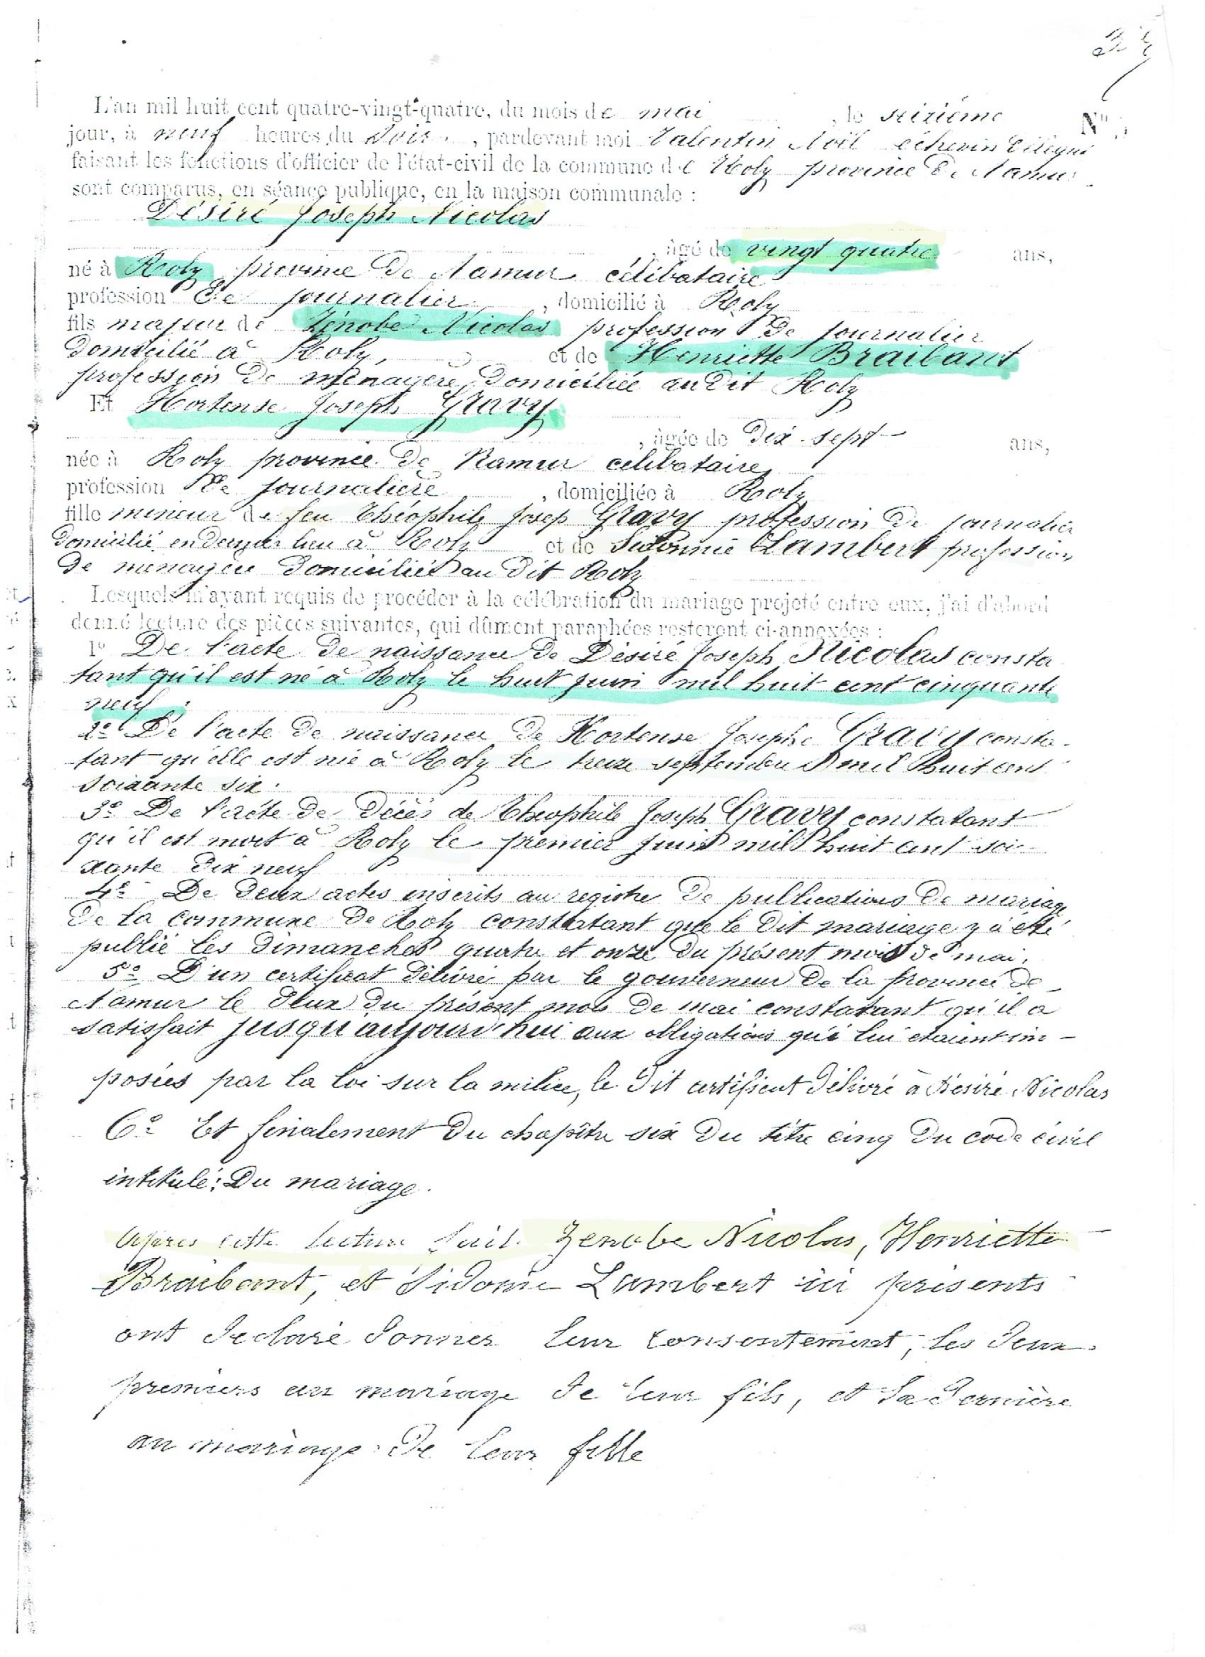 L'an mil huit cent quatre-vingt-quatre, du mois de mai, le seizième
N°
jour, à neuf heures du soir, pardevant moi Valentin Noël échevin délégué
faisant les fonctions d'officier de l'état-civil de la commune de Roly province de Namur
sont comparus, en séance publique, en la maison communale :
Désiré Joseph Nicolas
, âgé de vingt quatre ans,
né à Roly province de Namur célibataire
profession de journalier, domicilié à Roly
fils majeur de Zénobe Nicolas profession de journalier
domicilié à Roly, et de Henriette Braibant
profession de ménagère domiciliée au dit Roly
Et Hortense Joseph Gravy
, âgée de dix-sept ans,
née à Roly province de Namur célibataire
profession de journalière, domiciliée à Roly
fille mineur de feu Théophile Josep Gravy profession de journalier
domicilié en dernier lieu à Roly et de Sidonnie Lambert profession
de menagère domiciliée au dit Roly
Lesquels m'ayant requis de procéder à la célébration du mariage projeté entre eux, j'ai d'abord
donné lecture des pièces suivantes, qui dûment paraphées resteront ci-annexées :
1° De l'acte de naissance de Désiré Joseph Nicolas consta
tant qu'il est né à Roly le huit juin mil huit cent cinquante
neuf.
2° De l'acte de naissance de Hortense Josephe Gravy consta-
tant qu'elle est née à Roly le treize septembre mil huit cent
soixante six.
3° De l'acte de décès de Théophile Joseph Gravy constatant
qu'il est mort à Roly le premier juin mil huit cent soi-
xante dix neuf
4° De deux actes inscrits au registre de publications de mariage
de la commune de Roly constatant que le dit mariage y a été
publié les dimanches quatre et onze du présent mois de mai.
5° D'un certificat délivré par le gouverneur de la province de
Namur le deux du présent mois de mai constatant qu'il a
satisfait jusqu'aujourd'hui aux obligations qui lui étaient im-
posées par la loi sur la milice, le dit certificat délivré à Désiré Nicolas
6° Et finalement du chapître six du titre cinq du code civil
intitulé: Du mariage.
Après cette lecture fait Zenobe Nicolas, Henriette
Braibant, et Sidonie Lambert ici présents
ont déclaré donner leur consentement, les deux
premiers au mariage de leur fils, et la dernière
au mariage de leur fille